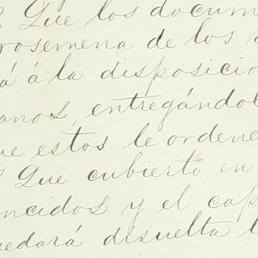 Que los docum
rosemena de los
á á la disposicio
anos, entregándol
ue estos le ordene
Que cubierto en
ncidos y el cap
uedará disuelta l